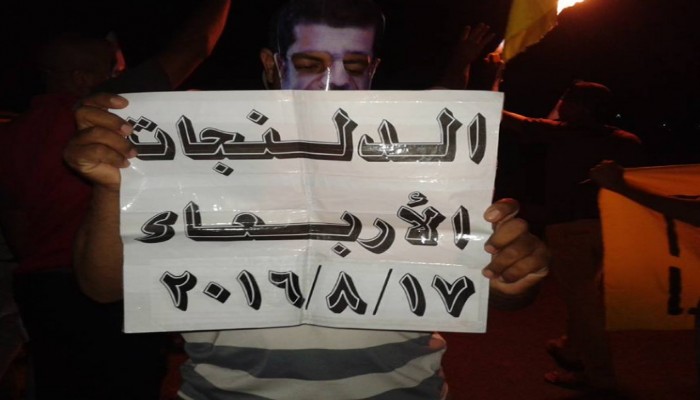 الدلنجات
الأربعاء
٢٠١٦/٨/١٧